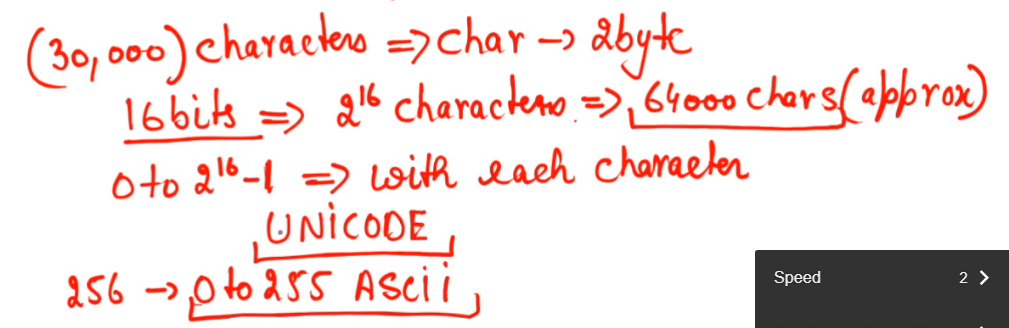 (30,000) characters => char -> 2byte
16bits => 2^16 characters => 64000 chars (approx)
0 to 2^16-1 => with each character
UNICODE
256 -> 0 to 255 ASCii
Speed 2 >